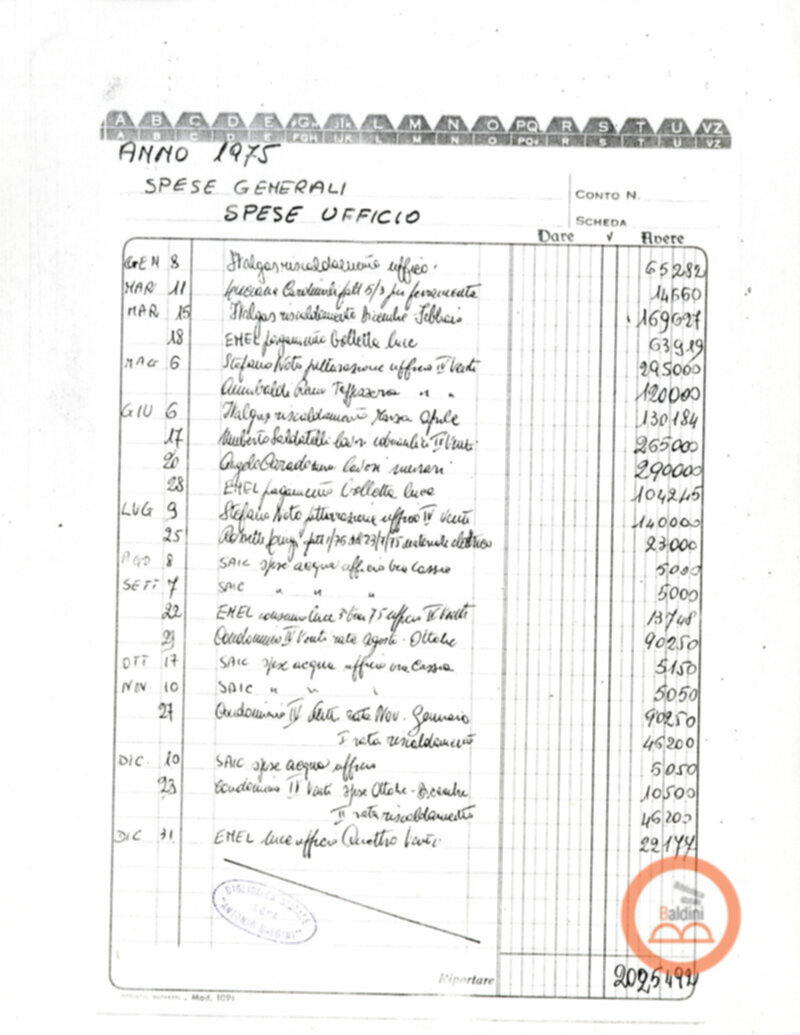 A B C D E FGH IJK L M N O PQ R S T U VZ
A B C D E FGH IJK L M N O PQ R S T U VZ
ANNO 1975
SPESE GENERALI
CONTO N.
SPESE UFFICIO
SCHEDA
Dare √ Avere
GEN 8 Italgas riscaldamento ufficio 65282
MAR 11 fatt 5/3 per ferramenta 14660
MAR 15 Italgas riscaldamento Dicembre Febbraio 169627
18 ENEL pagamento bolletta luce 63919
MAG 6 Stefano Noto pitturazione ufficio IV Venti 295000
Annibaldi " " 120000
GIU 6 Italgas riscaldamento Marzo Aprile 130184
17 Umberto Saldatelli lavori idraulici IV Venti 265000
20 Angelo lavori murari 290000
28 ENEL pagamento bolletta luce 104245
LUG 9 Stefano Noto pitturazione ufficio IV Venti 140000
25 fatt 1/75 del 23/7/75 materiale elettrico 23000
AGO 8 SAIC spese acqua ufficio via Cassia 5000
SETT 7 SAIC " " " 5000
22 ENEL consumo luce 75 ufficio IV Venti 13748
23 Condominio IV Venti rata Agosto - Ottobre 90250
OTT 17 SAIC spese acqua ufficio via Cassia 5150
NOV 10 SAIC " " " 5050
27 Condominio IV Venti rata Nov. Gennaio 90250
I rata riscaldamento 46200
DIC. 10 SAIC spese acqua ufficio 5050
23 Condominio IV Venti spese Ottobre - Dicembre 10500
II rata riscaldamento 46200
DIC 31 ENEL luce ufficio Quattro Venti 22177
BIBLIOTECA STATALE
ROMA
"ANTONIO BALDINI"
Baldini
Riportare 2025492
Mod. 1091